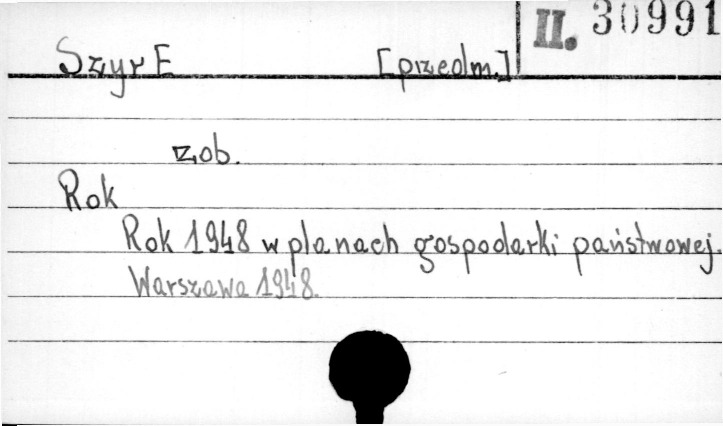 II. 30991
Szyr E [przedm.]
zob.
Rok
Rok 1948 w planach gospodarki państwowej.
Warszawa 1948.